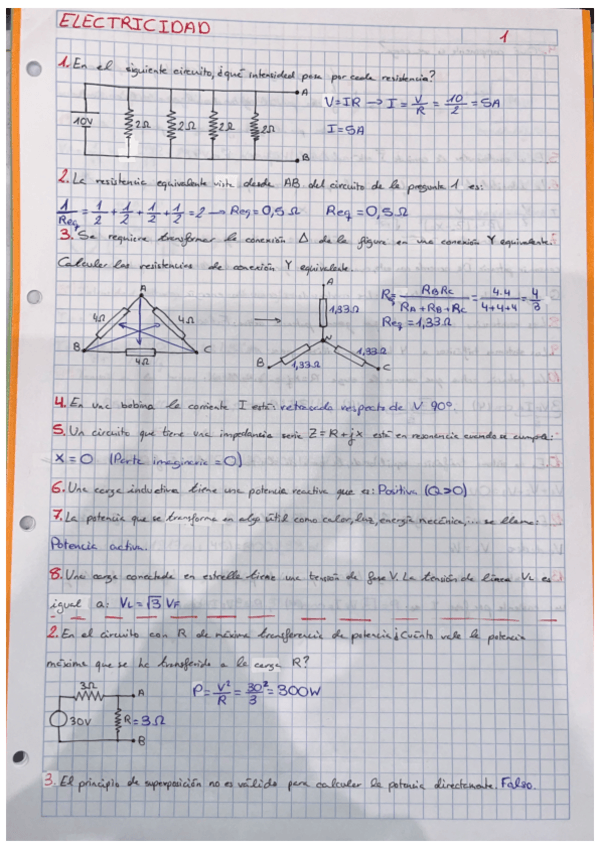 ELECTRICIDAD
1
1. En el siguiente circuito, ¿qué intensidad pasa por cada resistencia?
10V
2Ω
2Ω
2Ω
2Ω
A
B
V=IR → I = V/R = 10/2 = 5A
I=5A
2. La resistencia equivalente vista desde AB del circuito de la pregunta 1 es:
1/Req = 1/2 + 1/2 + 1/2 + 1/2 = 2 → Req = 0,5 Ω Req = 0,5 Ω
3. Se requiere transformar la conexión Δ de la figura en una conexión Y equivalente.
Calcular las resistencias de conexión Y equivalente.
A
4Ω
4Ω
B
4Ω
C
→
A
1,33Ω
N
B
1,33Ω
1,33Ω
C
Req = RBRC/(RA+RB+RC) = 4.4/(4+4+4) = 4/3
Req = 1,33Ω
4. En una bobina la corriente I está: retrasada respecto de V 90º.
5. Un circuito que tiene una impedancia serie Z=R+jx está en resonancia cuando se cumple:
x=0 (Parte imaginaria =0)
6. Una carga inductiva tiene una potencia reactiva que es: Positiva (Q>0)
7. La potencia que se transforma en algo útil como calor, luz, energía mecánica,... se llama:
Potencia activa.
8. Una carga conectada en estrella tiene una tensión de fase V. La tensión de línea VL es
igual a: VL = √3 VF
2. En el circuito con R de máxima transferencia de potencia ¿Cuánto vale la potencia
máxima que se ha transferido a la carga R?
3Ω
A
30V
R=3Ω
B
P = V²/R = 30²/3 = 300W
3. El principio de superposición no es válido para calcular la potencia directamente. Falso.